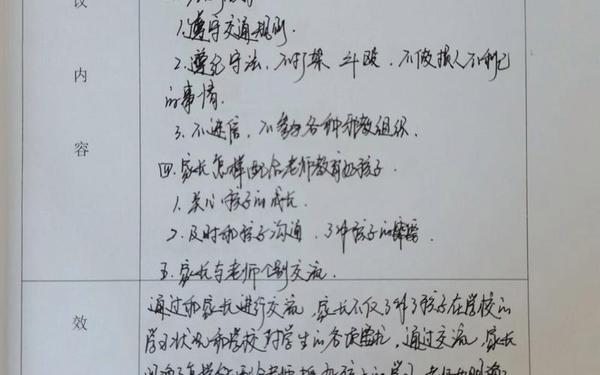 议
1.遵守交通规则.
内
2.遵纪守法、不打架 斗殴、不做损人不利己
的事情.
容
3.不迷信、不参加各种邪教组织.
四.家长怎样配合老师教育好孩子.
1.关心孩子的成长.
2.及时和孩子沟通、了解孩子的
五.家长与老师个别交流.
效
通过和家长进行交流,家长不仅了解了孩子在学校的
学习状况和学校对学生的各项要求,通过交流,家长